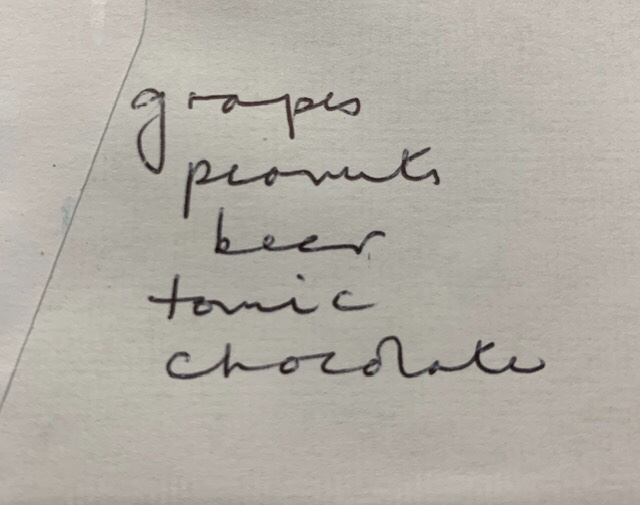 grapes
peanuts
beer
tonic
chocolate